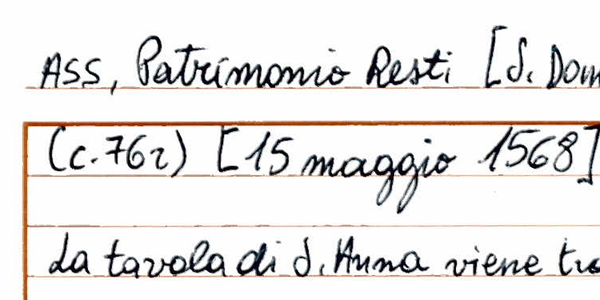 ASS, Patrimonio Resti [S. Dom
(c.76r) [15 maggio 1568]
La tavola di S. Anna viene tra